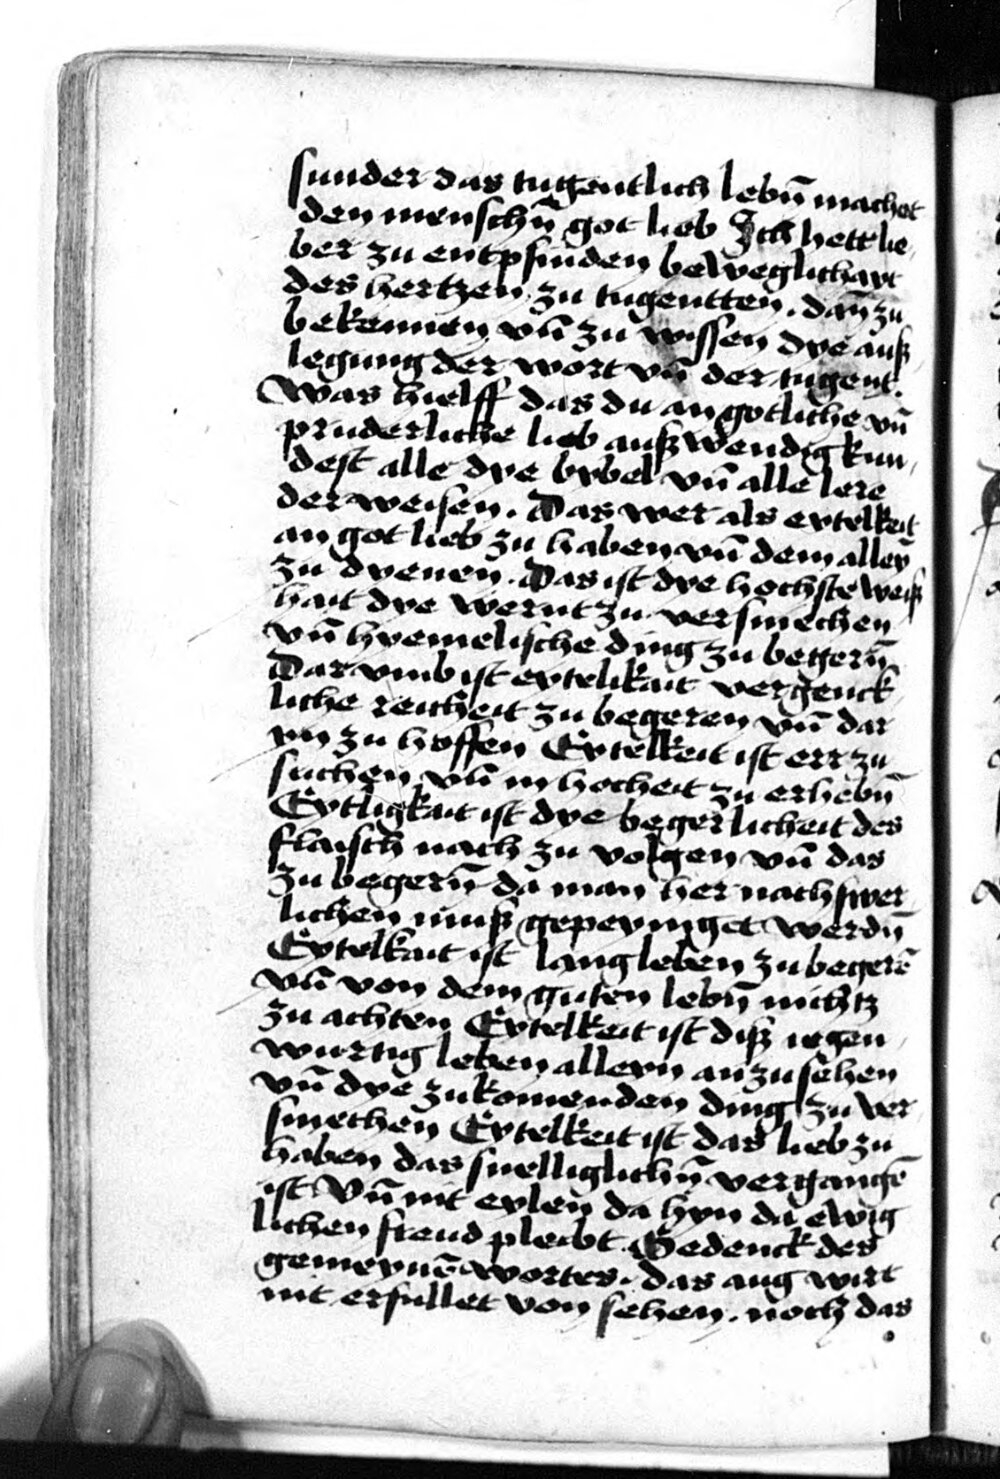 sunder das tugentlich lebn̄ machet
den menschn̄ got lieb Ich hett lie
ber zu entpfinden beweglichayt
des hertzen zu tugentten. dan̄ zu
bekennen vn̄ zu wissen dye auß
legung der wort vn̄ der tugent.
Was hielff das du an gotliche vn̄
pruderliche lieb außwendig kun
dest alle dye bybel vn̄ alle lere
der weisen. Das wer als eytelkeit
an got lieb zu haben vn̄ dem alleyn̄
zu dyenen. Das ist dye hochste weiß
hait dye wernt zu versmechen
vn̄ hyemelische ding zu begern̄
Dar vmb ist eytelikait vergenck
liche reicheit zu begeren vn̄ dar
yn zu hoffen Eytelkeit ist err zu
suchen vn̄ in hocheit zu erhebn̄
Eytligkait ist dye begerlicheit des
flaisch nach zu volgen vn̄ das
zu begern̄ da man her nach swer
lichen muß gepeyniget werdn̄
Eytelkait ist lang leben zu begerē
vn̄ von dem guten lebn̄ nichtz
zu achten Eytelkeit ist diß iegen
wurtig leben alleyn an zu sehen
vn̄ dye zukomenden ding zu ver
smechen Eytelkeit ist das lieb zu
haben das snelliglichn̄ vergangē
ist Vn̄ nit eylen da hyn da ewig
lichen freud pleibt Gedenck des
gemeynē wortes. das aug wirt
nit erfullet von sehen. noch das